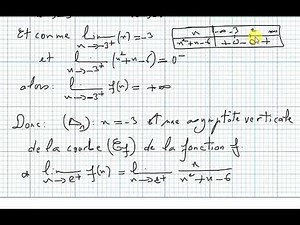 Et comme lim (x) = -3
x → -3⁺
x | -∞ -3 2 +∞
x²+x-6 | + 0 - 0 +
et lim (x²+x-6) = 0⁻
x → -3⁺
alors: lim f(x) = +∞
x → -3⁺
Donc: (Δ₁): x = -3 est une asymptote verticale
de la courbe (ℰf) de la fonction f.
lim f(x) = lim x / x²+x-6
x → 2⁺ x → 2⁺